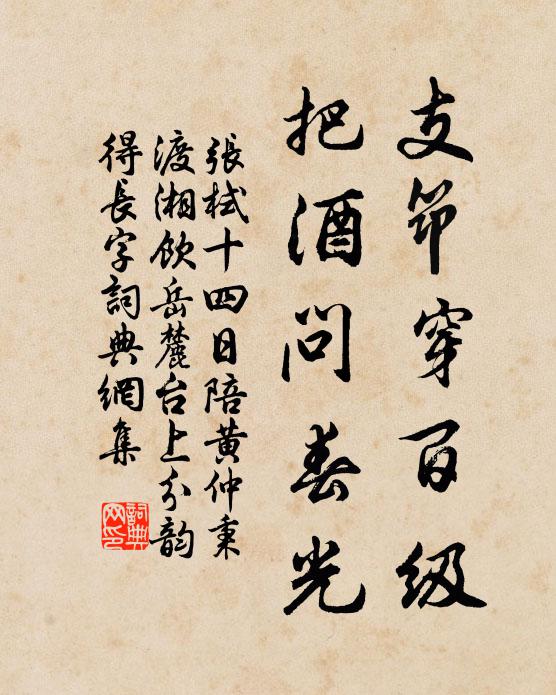 支筇穿百級
把酒問春光
張栻十四日陪黃仲秉
渡湘飲岳麓台上分韵
得長字詞典網集
詞典网印